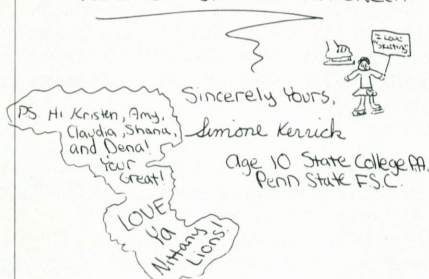 I Love
Skating
Sincerely Yours,
Simone Kerrick
age 10 State College PA.
Penn State F.S.C.
PS. Hi Kristen, Amy,
Claudia, Shana,
and Dena!
Your
Great!
LOVE
Ya
Nittany
Lions!